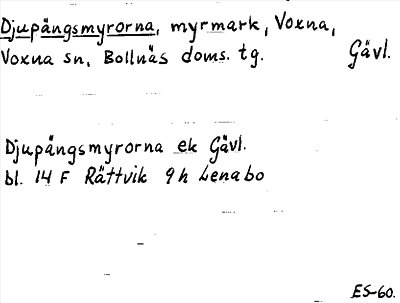 Djupängsmyrorna, myrmark, Voxna,
Voxna sn, Bollnäs doms. tg. Gävl.
Djupängsmyrorna ek Gävl.
bl. 14 F Rättvik 9h Lenabo
ES-60.